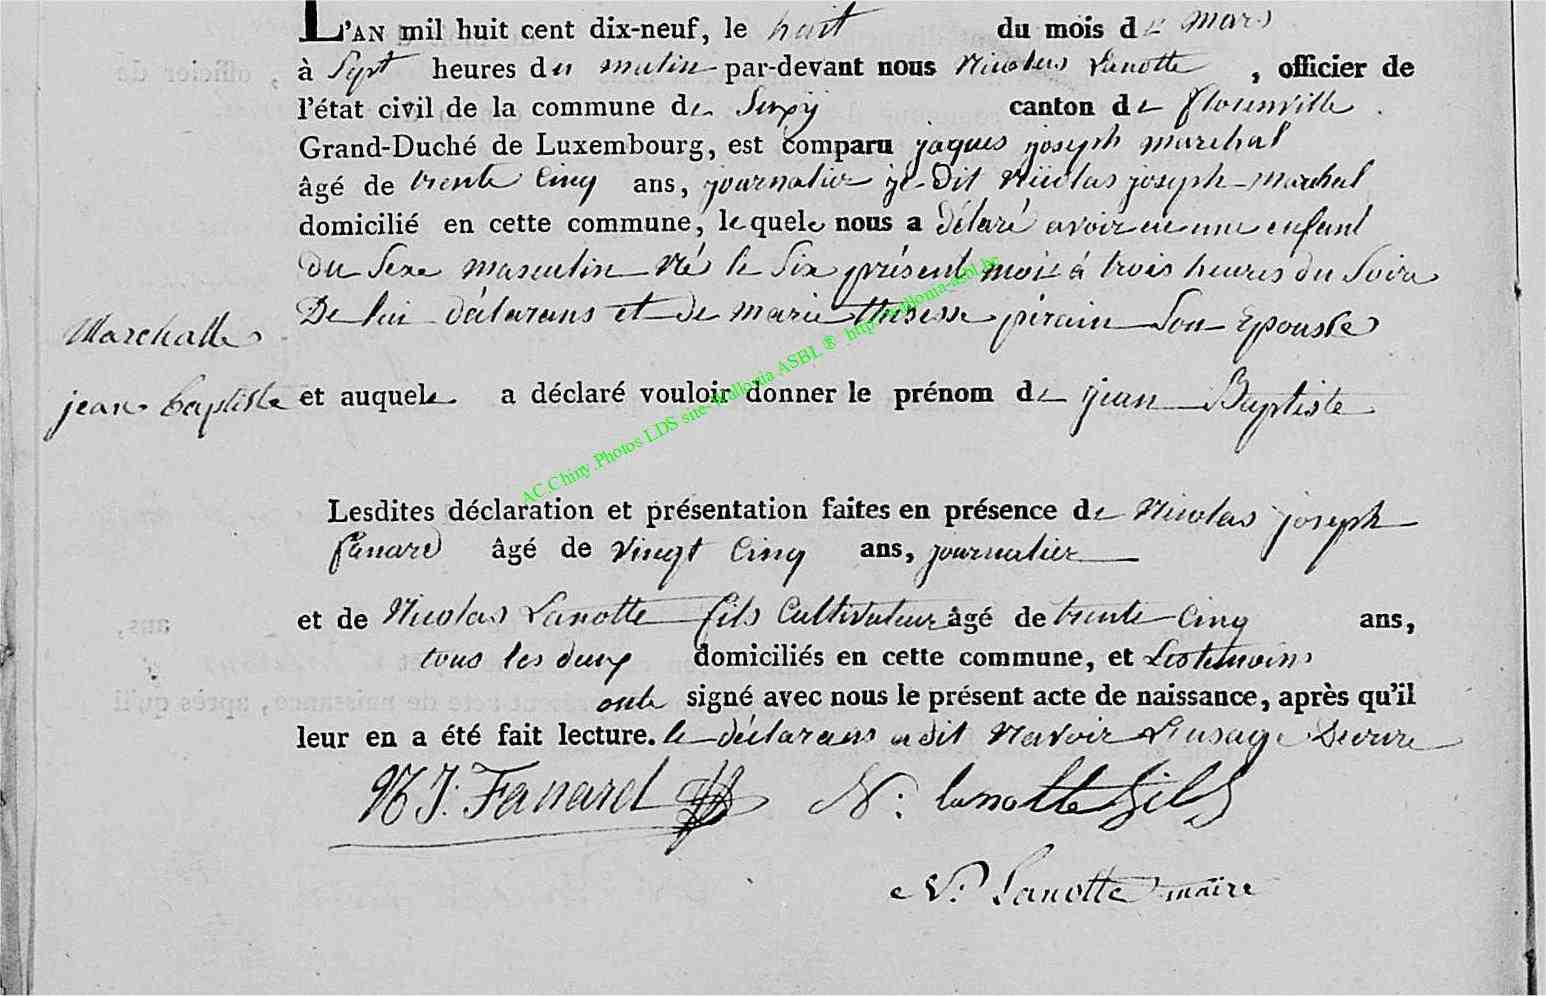 L'AN mil huit cent dix-neuf, le huit du mois de mars
à Sept heures du matin par-devant nous Nicolas Lanotte, officier de
l'état civil de la commune de Suxÿ canton de florenville.
Grand-Duché de Luxembourg, est comparu jaques joseph marchal
âgé de trente Cinq ans, journalier dit Nicolas joseph marchal
domicilié en cette commune, lequele nous a délaré avoir eu une enfant
du Sexe masculin Né le Six présent mois á trois heures du Soire
De lui déclarans et de marie théresse pirain Son Epousse
Marchalle
jean baptiste
et auquele a déclaré vouloir donner le prénom de jean Baptiste
AC.Chiny.Photos LDS site-Wallonia ASBL ® http://wallonia-asbl.be
Lesdites déclaration et présentation faites en présence de Nicolas joseph
fanard âgé de vingt Cinq ans, journalier
et de Nicolas Lanotte fils Cultivateur âgé de trente Cinq ans,
tous les deux domiciliés en cette commune, et Les temoins
onte signé avec nous le présent acte de naissance, après qu'il
leur en a été fait lecture. le déclarans a dit Navoir L'usage Decrire
N J: Fanard N: lanotte fils
N: Lanotte maire